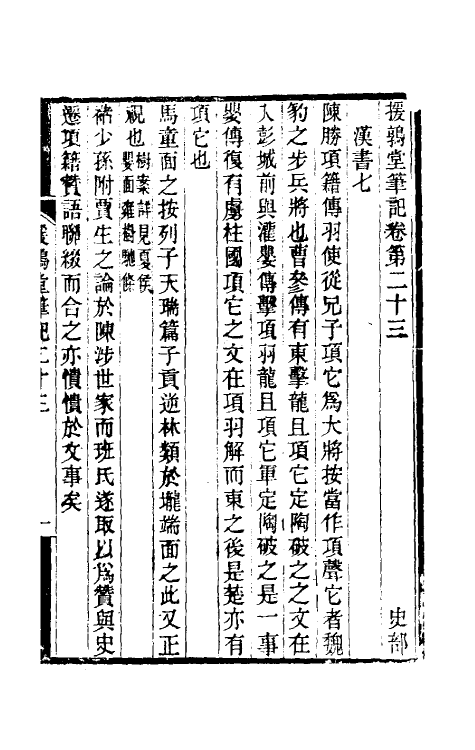 援鶉堂筆記卷第二十三
史部
漢書七
陳勝項籍傳羽使從兄子項它為大將按當作項聲它者魏
豹之步兵將也曹參傳有東擊龍且項它定陶破之之文在
入彭城前與灌嬰傳擊項羽龍且項它軍定陶破之是一事
嬰傳復有虜柱國項它之文在項羽解而東之後是楚亦有
項它也
馬童面之按列子天瑞篇子貢逆林類於壠端面之此又正
視也樹案詳見夏侯
嬰面雍樹馳條
褚少孫附賈生之論於陳涉世家而班氏遂取以為贊與史
遷項籍贊語聯綴而合之亦憒憒於文事矣
援鶉堂筆記二十三
一